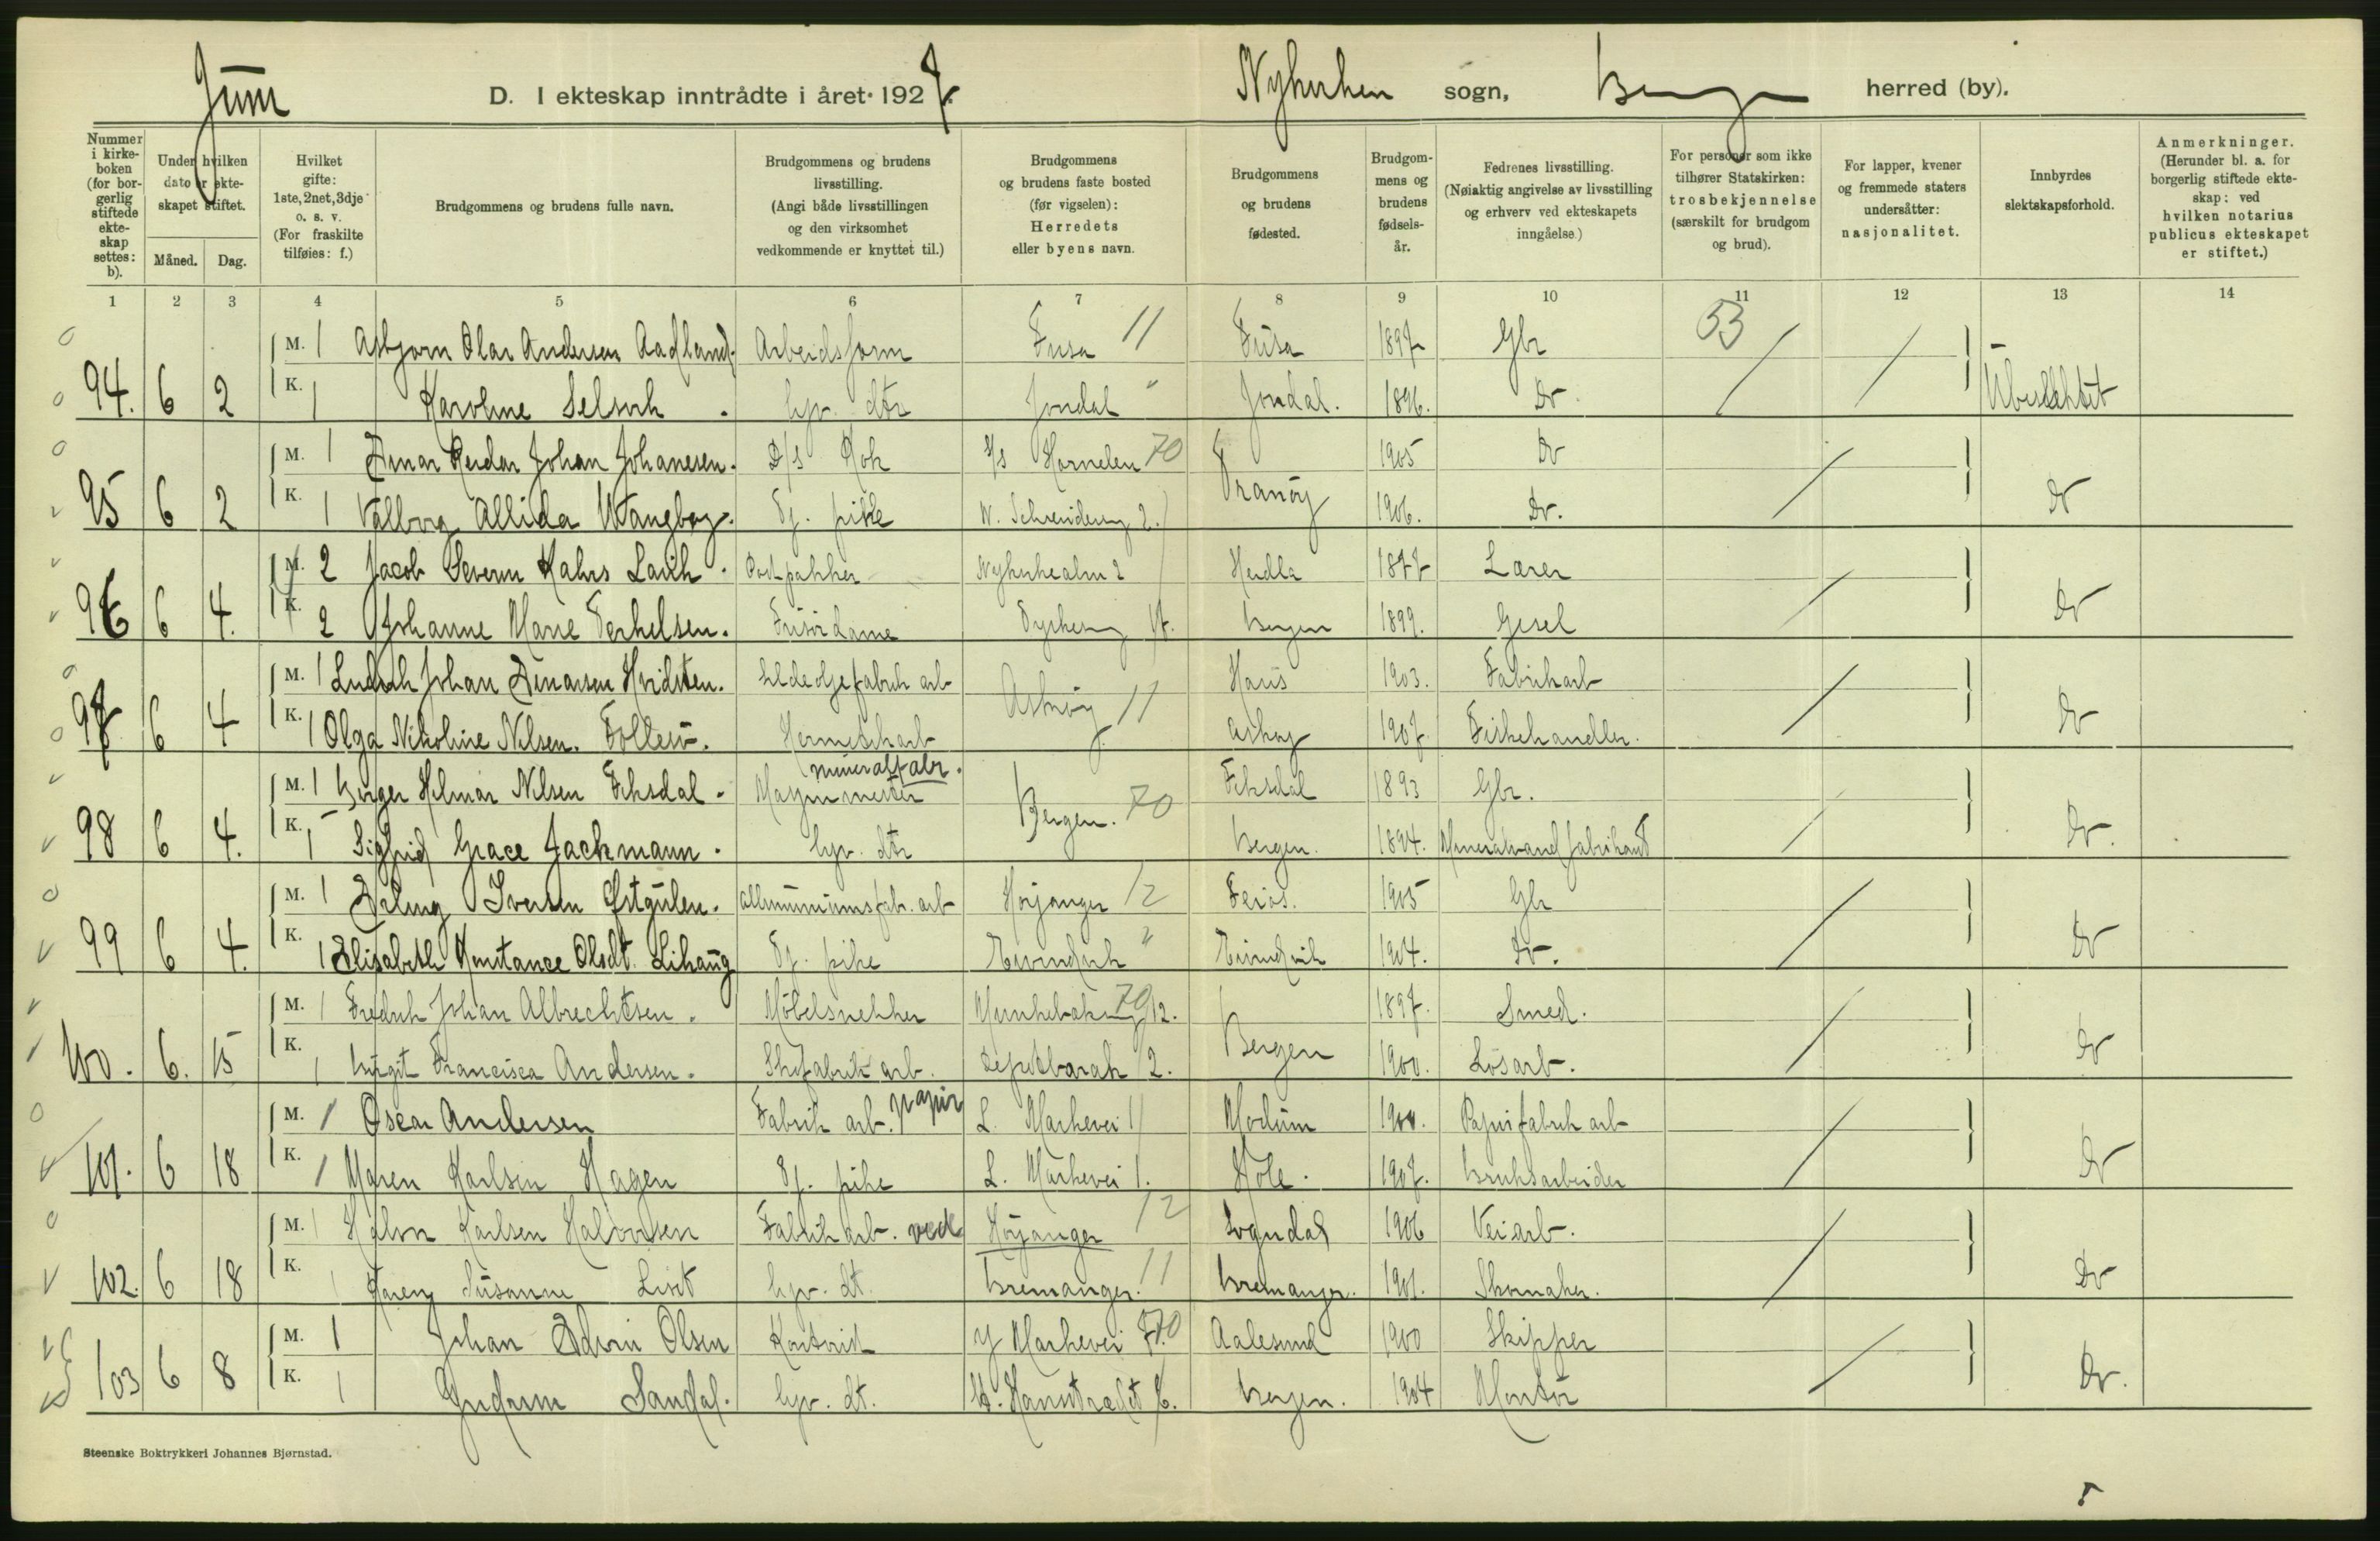 Juni D. I ekteskap inntrådte i året 1927. Nykirken sogn, Bergen herred (by).
Nummer i kirkeboken (for borgerlig stiftede ekteskap settes: b).
Under hvilken dato er ekteskapet stiftet.
Måned. Dag.
Hvilket gifte: 1ste, 2net, 3dje o. s. v. (For fraskilte tilføies: f.)
Brudgommens og brudens fulle navn.
Brudgommens og brudens livsstilling. (Angi både livsstillingen og den virksomhet vedkommende er knyttet til.)
Brudgommens og brudens faste bosted (før vigselen): Herredets eller byens navn.
Brudgommens og brudens fødested.
Brudgommens og brudens fødselsår.
Fedrenes livsstilling. (Nøiaktig angivelse av livsstilling og erhverv ved ekteskapets inngåelse.)
For personer som ikke tilhører Statskirken: trosbekjennelse (særskilt for brudgom og brud).
For lapper, kvener og fremmede staters undersåtter: nasjonalitet.
Innbyrdes slektskapsforhold.
Anmerkninger. (Herunder bl. a. for borgerlig stiftede ekteskap: ved hvilken notarius publicus ekteskapet er stiftet.)
1 2 3 4 5 6 7 8 9 10 11 12 13 14
M. 1 Asbjørn Olai Andersen Aadland. Arbeidsform Fusa 11 Fusa 1897 Gbr 53
94. 6 2 K. 1 Karoline Selsvik. hjv. dtr Jondal " Jondal. 1896. Do Ubeslektet
M. 1 Einar Reidar Johan Johanesen. D/s Kok D/s Hornelen 70 1905 Do
95 6 2 K. 1 Valborg Allida Wangberg. Tj. pike 2. Tranøy 1906. Do. Do
M. 2 Jacob Severin Kahrs Lavik. Postpakker Nykirkealm 2 Herdla 1877 Lærer
96 6 4. K. 2 Johanne Marie Terkelsen. Frisördame Bergen 1899. Gesel Do
M. 1 Ludvik Johan Einarsen Hvidsten. Sildeoljefabrik arb Askøy 11 Haus 1903. Fabrikarb
97 6 4 K. 1 Olga Nikoline Nilsen. Follesø. Hermetikarb Askøy 1907. Fiskehandler. Do
M. 1 Birger Hilmar Nilsen Fiksdal. mineralfabr. Bergen. 70 Fiksdal 1893 Gbr.
98 6 4. K. 1 Sigfrid Grace Jackmann. hjv. dtr Bergen. 1894. Mineralvandfabrikant Do.
M. 1 Erling Iversen Østgulen. alluminiumsfabr. arb Høyanger 12 Feios. 1905 Gbr
99 6 4. K. 1 Elisabeth Konstance Olsdt. Lihaug Tj. pike Eivindvik " Eivindvik 1904. Do. Do
M. 1 Fredrik Johan Albrechtsen. Möbelsnekker Munkebakken 70 12. Bergen 1897. Smed.
100. 6. 15 K. 1 Birgit Francisca Andersen. Skofabrik arb. 2. 1900. Løsarb. Do
M. 1 Oscar Andersen Fabrik arb. papir L. Markevei 1 Modum 1900. Papirfabrik arb
101. 6 18 K. 1 Maren Karlsen Hagen Tj. pike L. Markevei 1. Hole. 1907. Bruksarbeider Do
M. 1 Halvor Karlsen Halvorsen Fabrik arb. ved Høyanger 12 Sogndal 1906 Veiarb.
102. 6 18 K. 1 Karen Susanne Liset hjv. dt. Bremanger. 11 Bremanger. 1901. Skomaker. Do
M. 1 Johan Edvin Olsen Kontorist Y Markevei 70 Aalesund 1900 Skipper
103 6 8 K. 1 Gudrun Sandal. hjv. dt. 6. Bergen. 1904 Montør Do.
Steenske Boktrykkeri Johannes Bjørnstad.